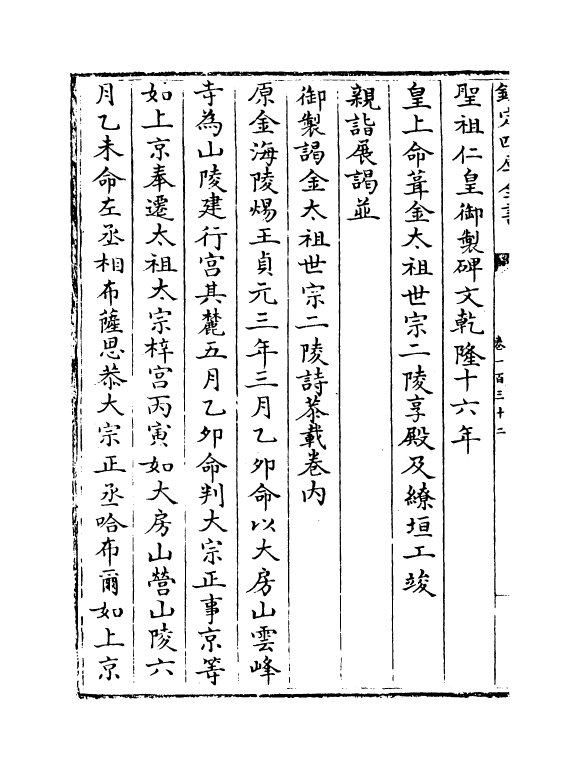 欽定四庫全書
卷一百三十二
聖祖仁皇御製碑文乾隆十六年
皇上命葺金太祖世宗二陵享殿及繚垣工竣
親詣展謁並
御製謁金太祖世宗二陵詩恭載卷内
原金海陵煬王貞元三年三月乙夘命以大房山雲峰
寺為山陵建行宫其麓五月乙夘命判大宗正事京等
如上京奉遷太祖太宗梓宫丙寅如大房山營山陵六
月乙未命左丞相布薩思恭大宗正丞哈布爾如上京